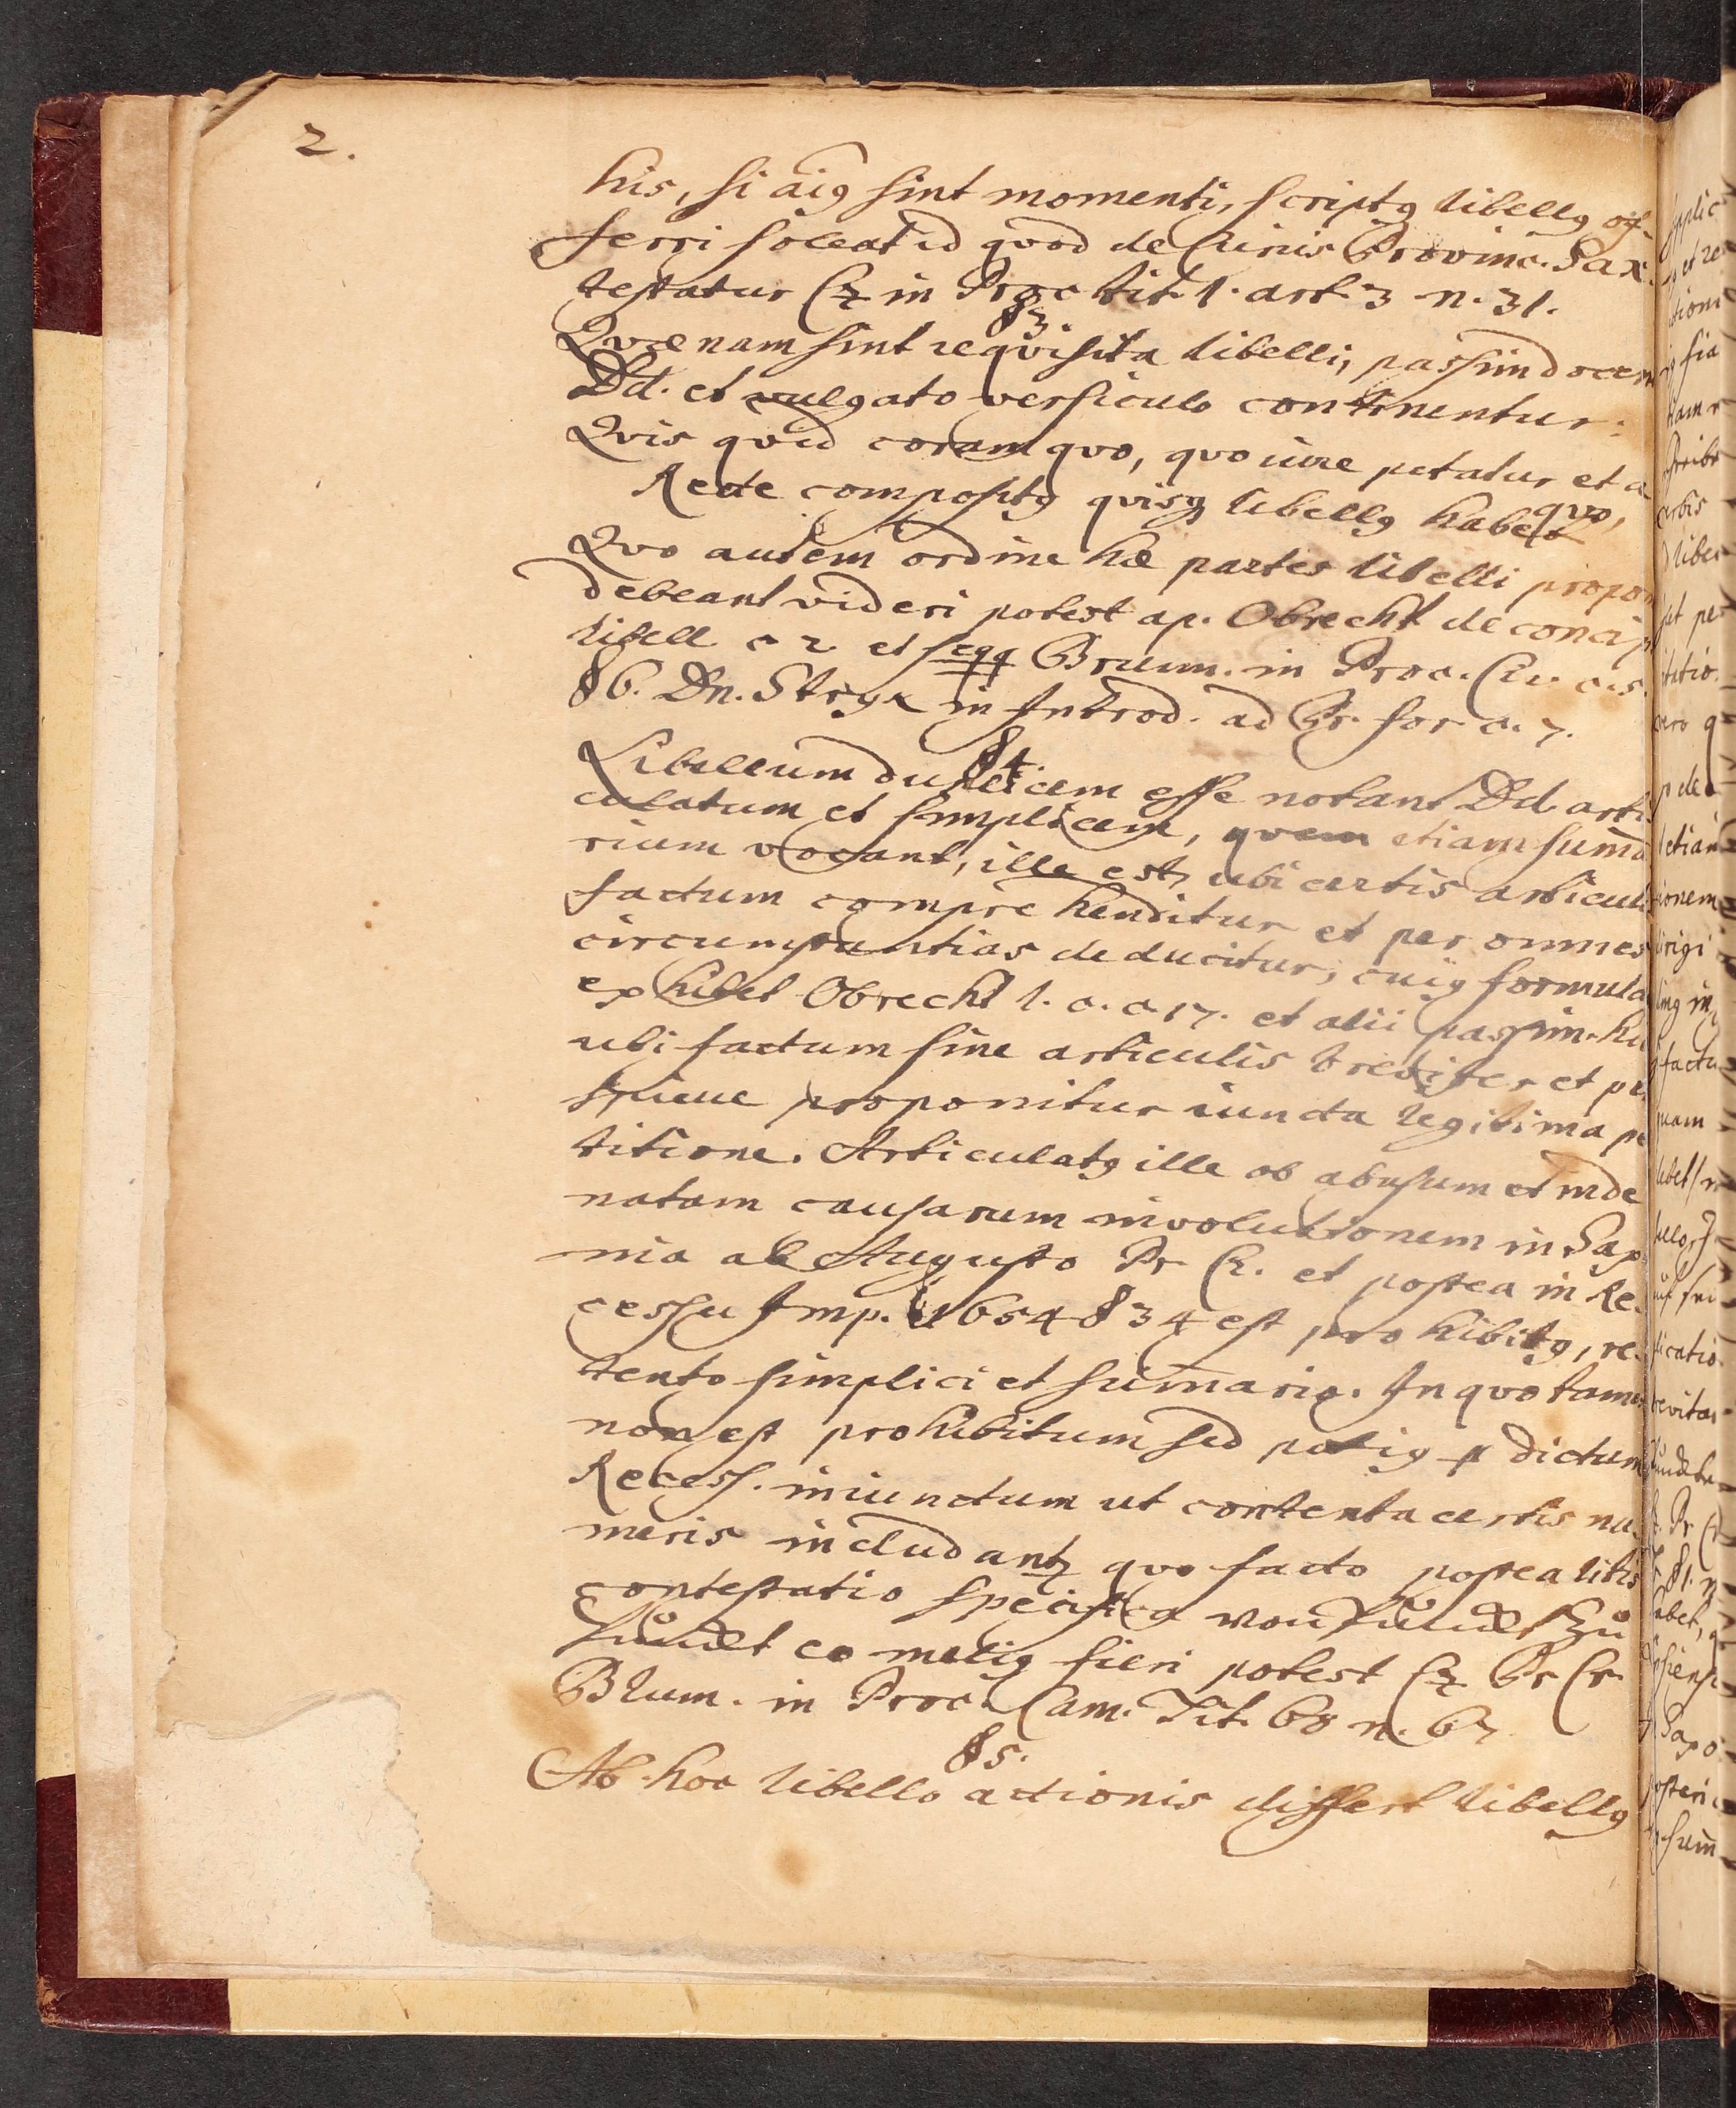 2.
his, si aig sint momenti, scriptg libellg of-
ferri soleat id qvod de Curiis Provinc. Sax.
testatur Cz in Proc tit. 1. art. 3 n. 31.
§3
Qvænam sint reqvisita libelli, passim docen
Dd. et vulgato versiculo continentur:
Qvis qvid coram qvo, qvo iure petatur et a
qvo,
Recte compositg qvisq libellg habet
Qvo autem ordine hæ partes libelli propon
debeant videri potest ap. Obrecht de concip
libell c 2 et seqq Brunn. in Proc. Civ. c. 5.
§6. Dn. Stryk in Introd. ad Pr. for c. 7.
§4.
Libellum duplicem esse notant Dd. arti
culatum et simplicem, qvem etiam summa
rium vocant, ille est, ubi certis articuli
factum comprehenditur et per omnes
circumstantias deducitur, cuig formula
exhibet Obrecht l. c. c 17. et alii passim. hi
ubi factum sine articulis breviter et per
spicue proponitur iuncta legitima pe
titione. Articulatg ille ob abusum et inde
natam causarum involutionem in Saxo
nia ab Augusto Pr. El. et postea in Re-
cessu Imp. 1654 §34 est prohibitg, re-
tento simplici et sumario. In qvo tamen
non est prohibitum sed potig p dictum
Recess. iniunctum ut contenta certis nu-
meris includantz qvo facto postea litis
contestatio specifica von Punct zu
Punct eo melig fieri potest Cz Pr Cr.
Blum. in Proc. Cam. Tit. 68 n. 67
§5.
Ab hoc libello actionis differt libellg